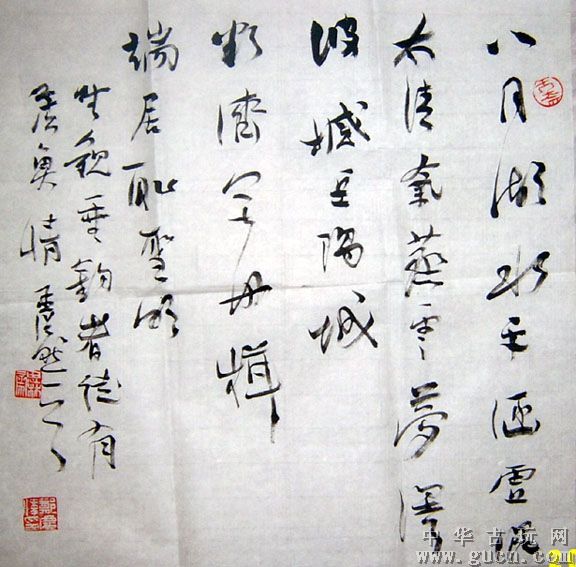 八月湖水平涵虚混
太清氣蒸雲夢澤
波撼岳陽城
欲濟無舟楫
端居耻聖明
坐觀垂釣者徒有
羨魚情
中华古玩网
www.gucn.com